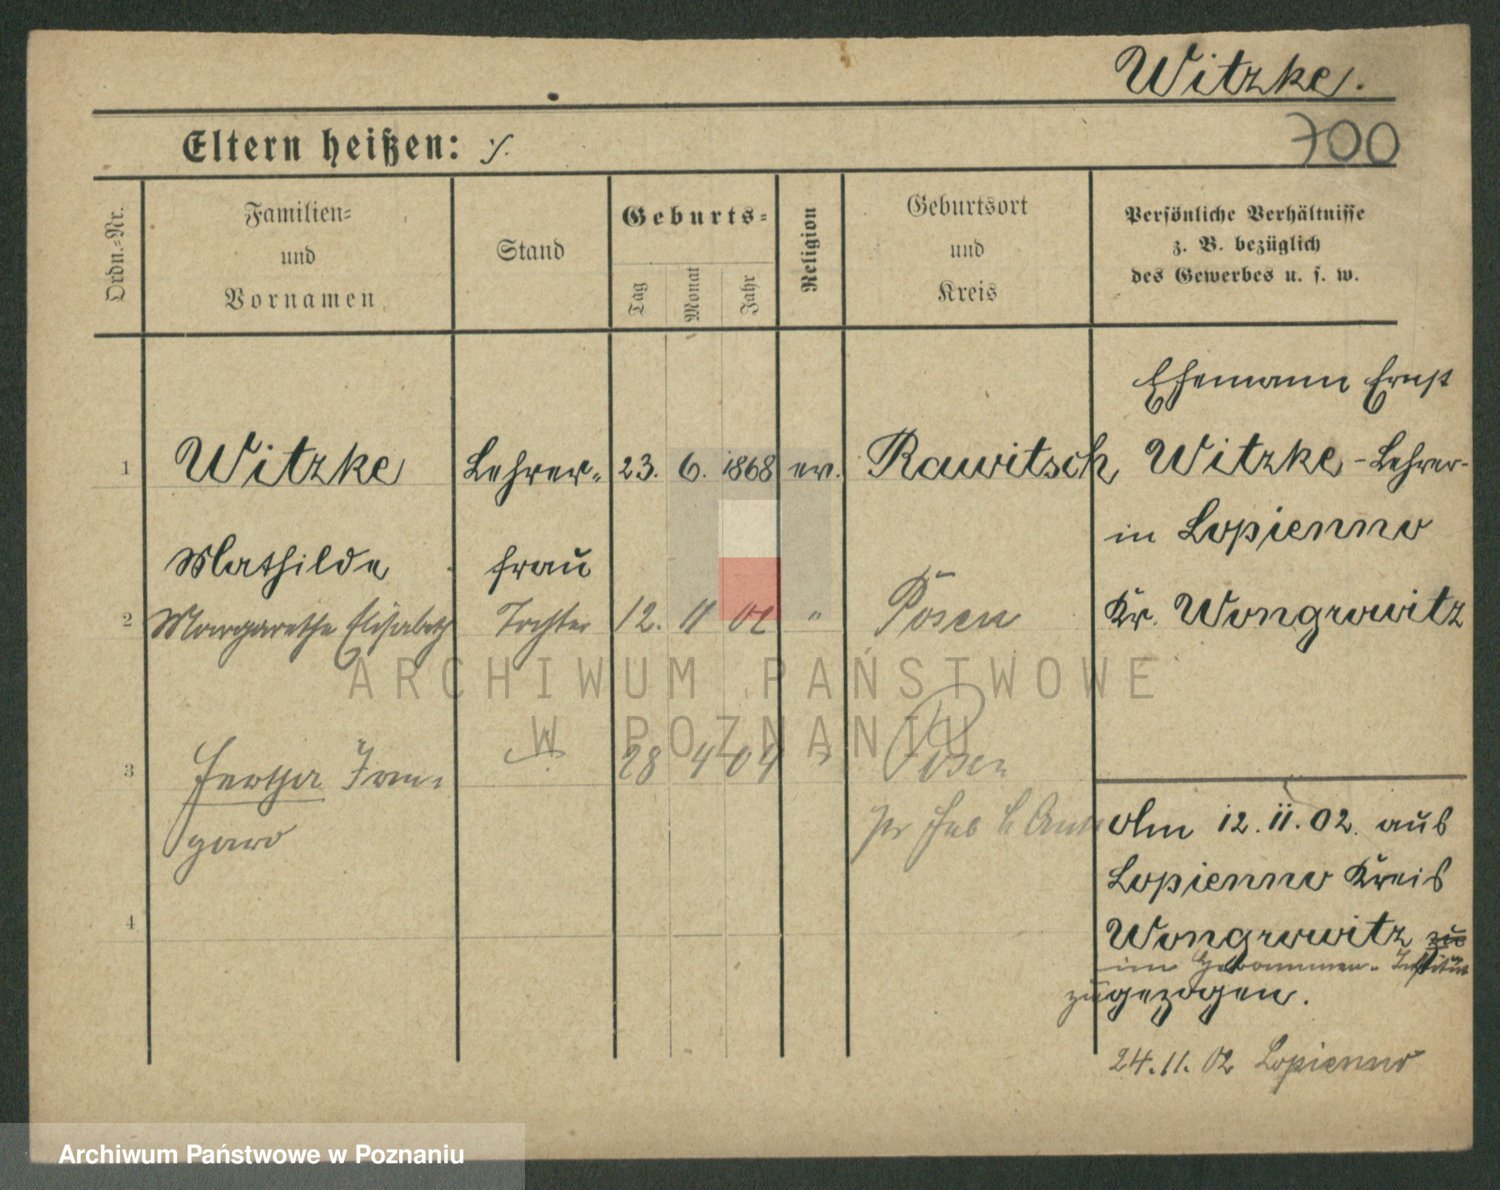 Witzke.
Eltern heißen: ./.
700
Ordn.-Nr.
Familien-
und
Vornamen
Stand
Geburts-
Tag
Monat
Jahr
Religion
Geburtsort
und
Kreis
Persönliche Verhältnisse
z. B. bezüglich
des Gewerbes u. s. w.
Ehemann Ernst
1 Witzke Lehrer- 23. 6. 1868 ev. Rawitsch Witzke - Lehrer-
in Lopienno
Mathilde frau
2 Margarethe Elisabeth Tochter 12. 11 02 " Posen Kr. Wongrowitz
ARCHIWUM PAŃSTWOWE
W POZNANIU
3 Irm- 28 4 04 " Posen
gard
Am 12. 11. 02. aus
Lopienno Kreis
4 Wongrowitz zu
im Hebammen-Institut
zugezogen.
24. 11. 02 Lopienno
Archiwum Państwowe w Poznaniu